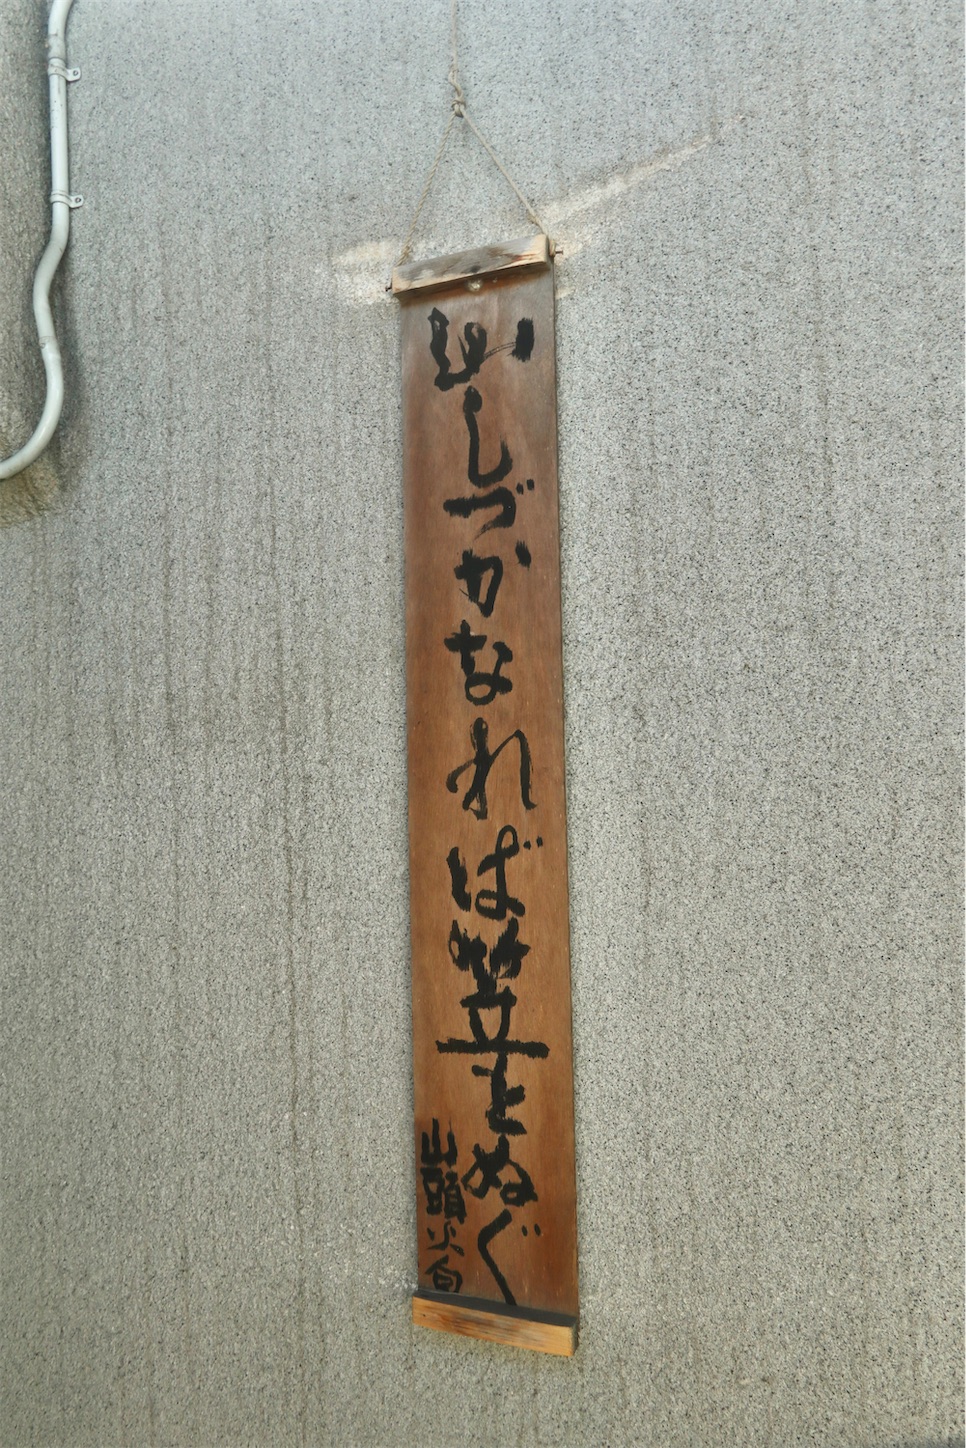 山しづかなれば笠をぬぐ
山頭火句